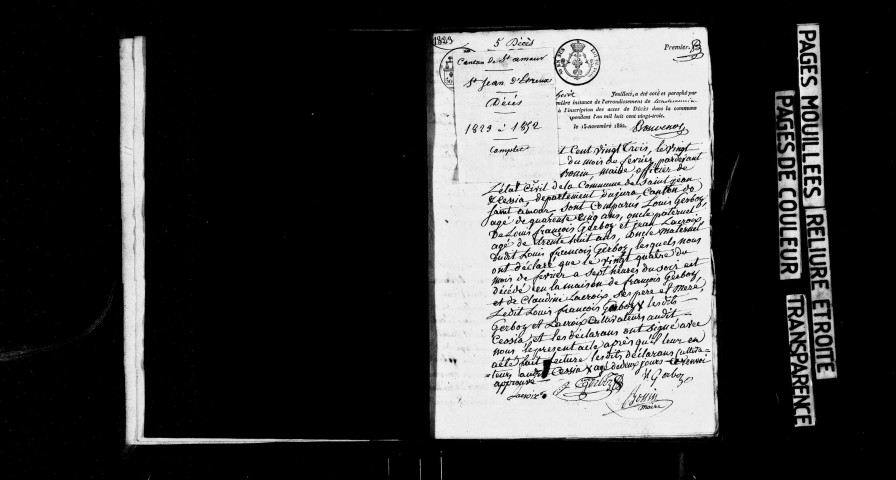 1823
5 Décès
Canton de St amour
St Jean d'Etreux
Décès
1823 à 1852
Complet
Premier
feuillet, a été coté et paraphé par
première instance de l'arrondissement de
à l'inscription des actes de Décès dans la commune
pendant l'an mil huit cent vingt-trois.
le 15 novembre 1822.
t Cent vingt trois, le vingt
du mois de fevrier pardevant
Bonin maire officier de
l'état civil de la Commune de Saint jean
& Cessia, departement du jura, Canton de
saint amour, sont Comparus Louis Gerboz,
agé de quarente cinq ans, oncle paternel
De Louis françois Gerboz et jean Lacroix,
agé de trente huit ans, oncle maternel
dudit Louis francois Gerboz, lesquels nous
ont déclaré que le vingt quatre du
mois de fevrier a sept heures du soir est
décédé en la maison de françois Gerboz,
et de Claudine Lacroix ses pere et mere,
Ledit Louis françois Gerboz X lesdits
Gerboz et Lacroix Cultivateurs audit
Cessia, et les déclarans ont signé avec
nous le present acte après qu'il leur en
a été fait lecture lesdits déclarans Cultiva-
=teurs audit Cessia X agé de deux jours renvoi
approuvé
J Gerboz
Lacroix
Bonin
maire
PAGES MOUILLEES RELIURE ÉTROITE
PAGES DE COULEUR TRANSPARENCE